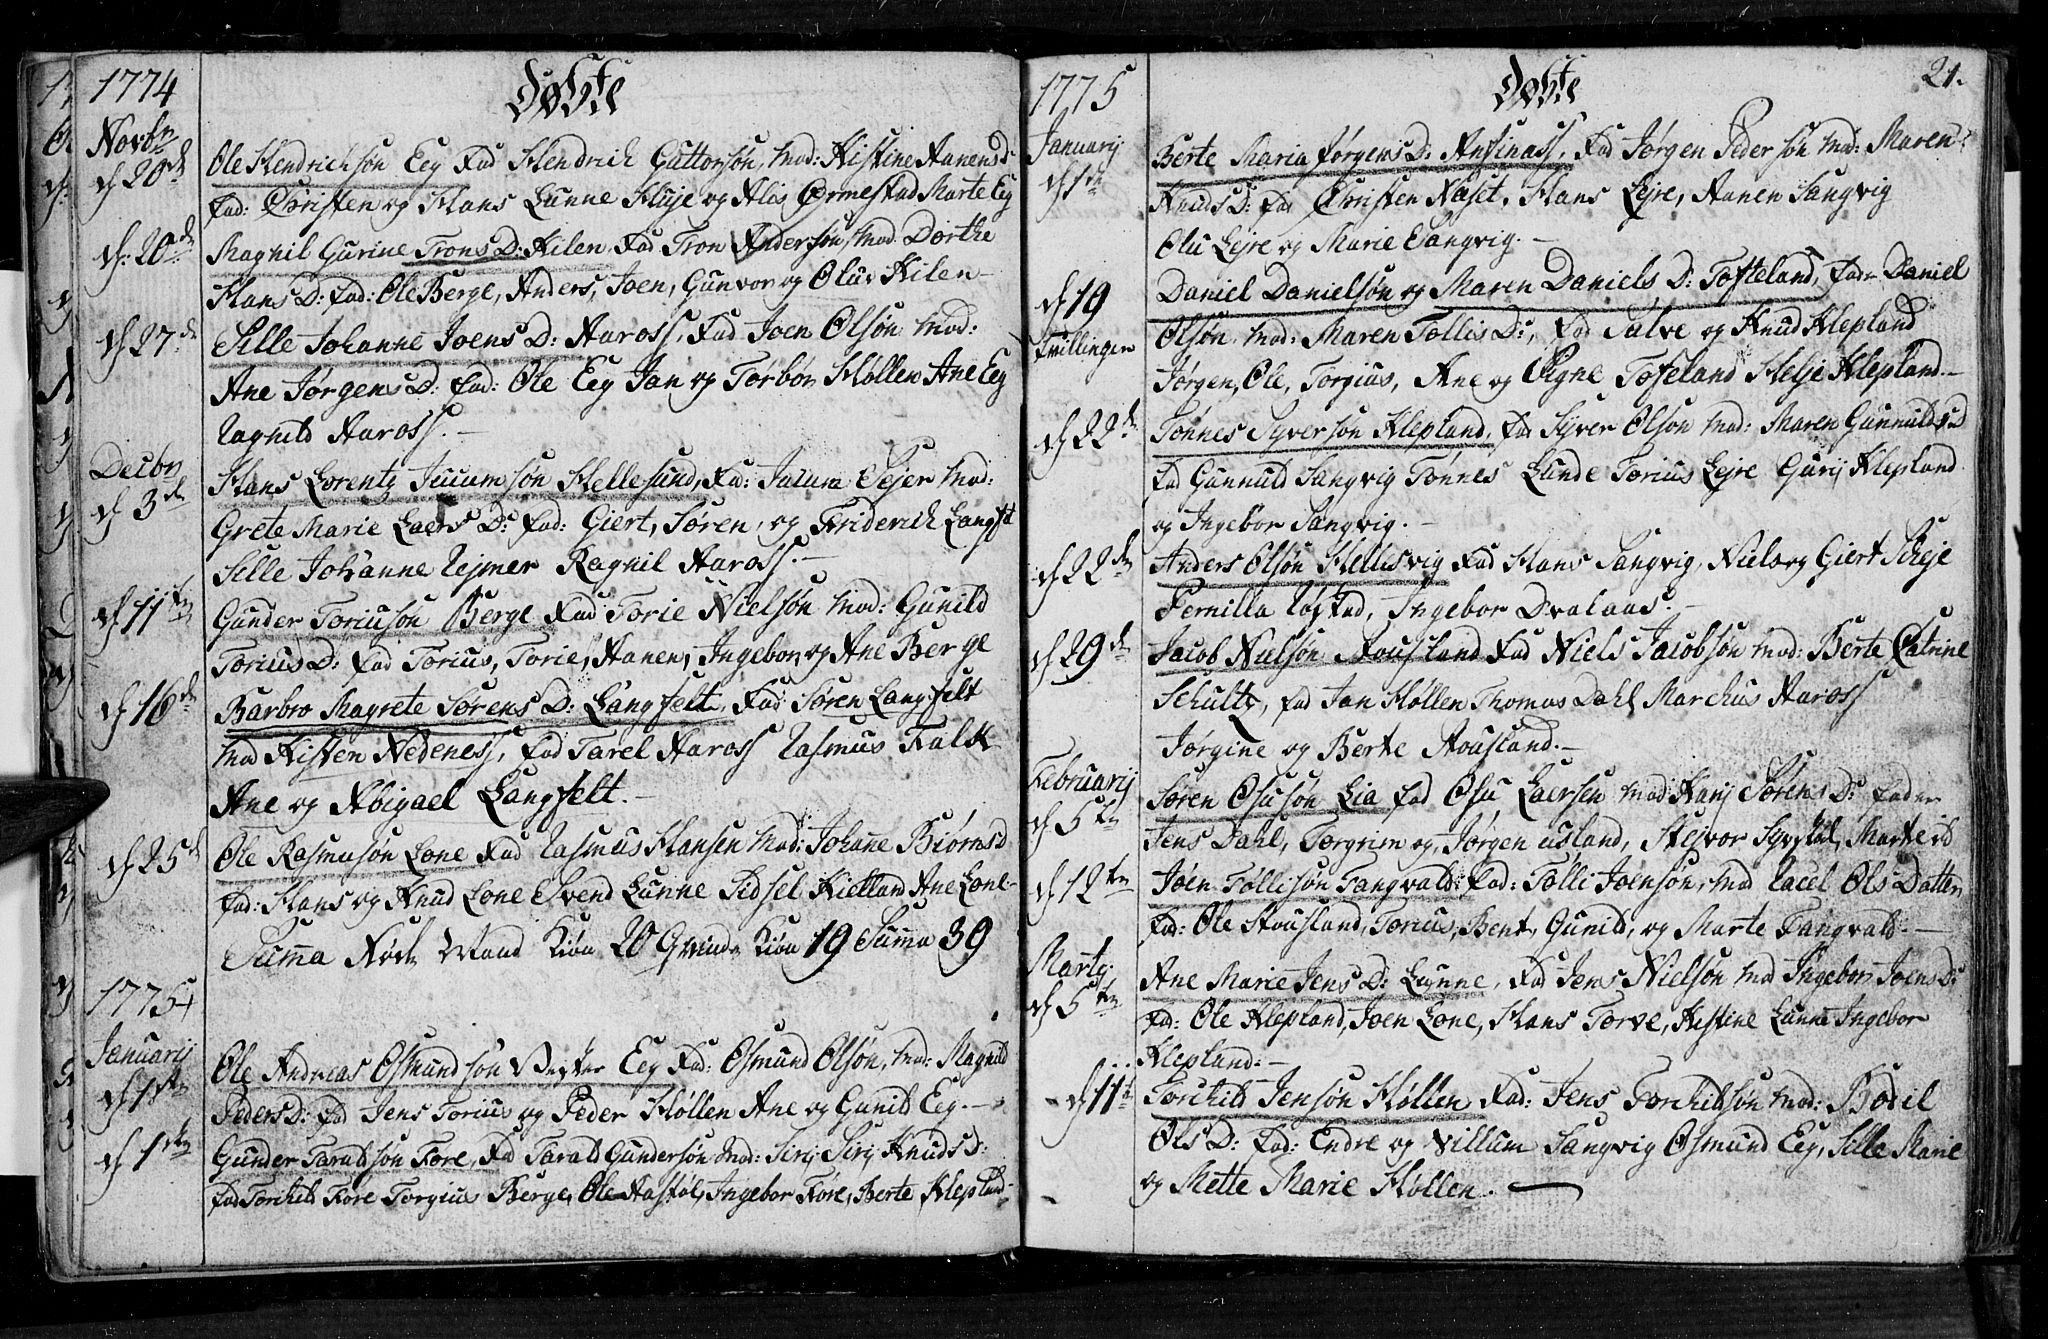 1774
Døbte
Novbr
d. 20de
Ole Hendrichsøn Eeg Fad Hendrich Guttorsøn, Mod: Kistine Aanends
fad: Christen og Hans Lunne Huje og Alis Ørmestad Marte Eeg
d: 20de
Magnil Gurine Trons D: Kilen Fad Tron Andersøn Mod. Dorthe
Hans D: fad: Ole Berge, Anders, Joen, Gunvor og Olu Kilen
d 27de
Sille Johanne Joens D: Aaross, Fad Joen Olsøn Mod:
Ane Jørgens D: fad: Ole Eeg Jan og Torbør Høllen Ane Eeg
Ragnild Aaross.
Decbr
d 3de
Hans Lorentz Juuum søn Hellesund, Fa: Juium Sejer Mod:
Grete Marie Laers D: fad: Giert, Søren, og Friderich Langft
Sille Johanne Rejmer Ragnil Aaross.
d 11te
Gunder Toriusøn Berge Fad Torie Nielsøn Mod: Gunild
Torius D: fad Torius, Torie, Aanen, Ingebor og Ane Berge
d 16de
Barbro Magrete Sørens D: Langfelt, Fad Søren Langfelt
Mod Kisten Nedeness, fad Tarel Aaross Rasmus Falk
Ane og Abigael Langfelt.
d 25de
Ole Rasmusøn Lone Fad Rasmus Hansen Mod: Johane Biørns D
fad: Hans og Knud Lone Svend Lunne Sidsel Kielland Ane Lone
Summa Føde Mand Kiøn 20 Qvinde Kiøn 19 Summa 39
1775
Januarij
d 1ste
Ole Andreas Osmundsøn Vester Eeg Fad: Osmund Olsøn, Mod: Magnild
Peders D: fad Jens Torius og Peder Høllen Ane og Gunild Eeg.
d 1ste
Gunder Taraldsøn Fore, Fad Tarald Gundersøn Mod: Sirij Sirij Knuds D:
fad Torchild Fore Torgius Berge, Ole Aastøl, Ingebor Føre, Berte Klepland
1775
Døbte
21.
Januarij
d 1te
Berte Maria Jørgens D: Ansinass, Fad Jørgen Peder søn Mod: Maren
Knuds D: fad Christen Naset, Hans Lejre, Aanen Sangvig
Olu Lejre og Marie Sangvig.
d 19
Tvillinger
Daniel Danielsøn og Maren Daniels D: Tofteland, fad Daniel
Olsøn, Mod: Maren Tollis D:, Fad Salve og Knud Klepland
Jørgen, Ole, Torgius, Ane og Signe Tofeland Helje Klepland.
d 22de
Tønnes Syversøn Klepland, fad Syver Olsøn Mod: Maren Gunnulds D
fad Gunnuld Sangvig Tønnes Lunde Torius Lejre Gurij Klepland
og Ingebor Sangvig.
d 22de
Anders Olsøn Hellesvig Fad Hans Sangvig, Niels og Giert Scheje
Pernilla Røstad, Ingebor Dvalaas.
d 29de
Jacob Nielsøn Aousland Fad Niels Jacobsøn Mod: Berte Catrine
Schultz, fad Jan Høllen Thomas Dahl Marchus Aaross
Jørgine og Berte Aousland.
Februarij
d 5te
Søren Osusøn Lia fad Osu Laersen Mod Karij Sørens D: fader
Jens Dahl, Torgrim og Jørgen usland, Stejvor Syvstal, Marte ib
d 12te
Joen Tollisøn Tangvald: Fad: Tolli Joensøn, Mod Racel Ols Datter
fad: Ole Housland, Torius, Bent, Gunild, og Marte Tangvald.
Martij
d 5te
Ane Marie Jens D: Lunne, Fad Jens Nielsøn Mod Ingebor Joens D:
fad: Ole Klepland, Joen Lone, Hans Torve, Kistine Lunne Ingebor
Klepland:
d 11te
Torchild Jensøn Høllen Fad: Jens Torchildsøn Mod: Bodil
Ols D: fad: Endre og Villum Sangvig Osmund Eeg, Sille Marie
og Mette Marie Høllen.